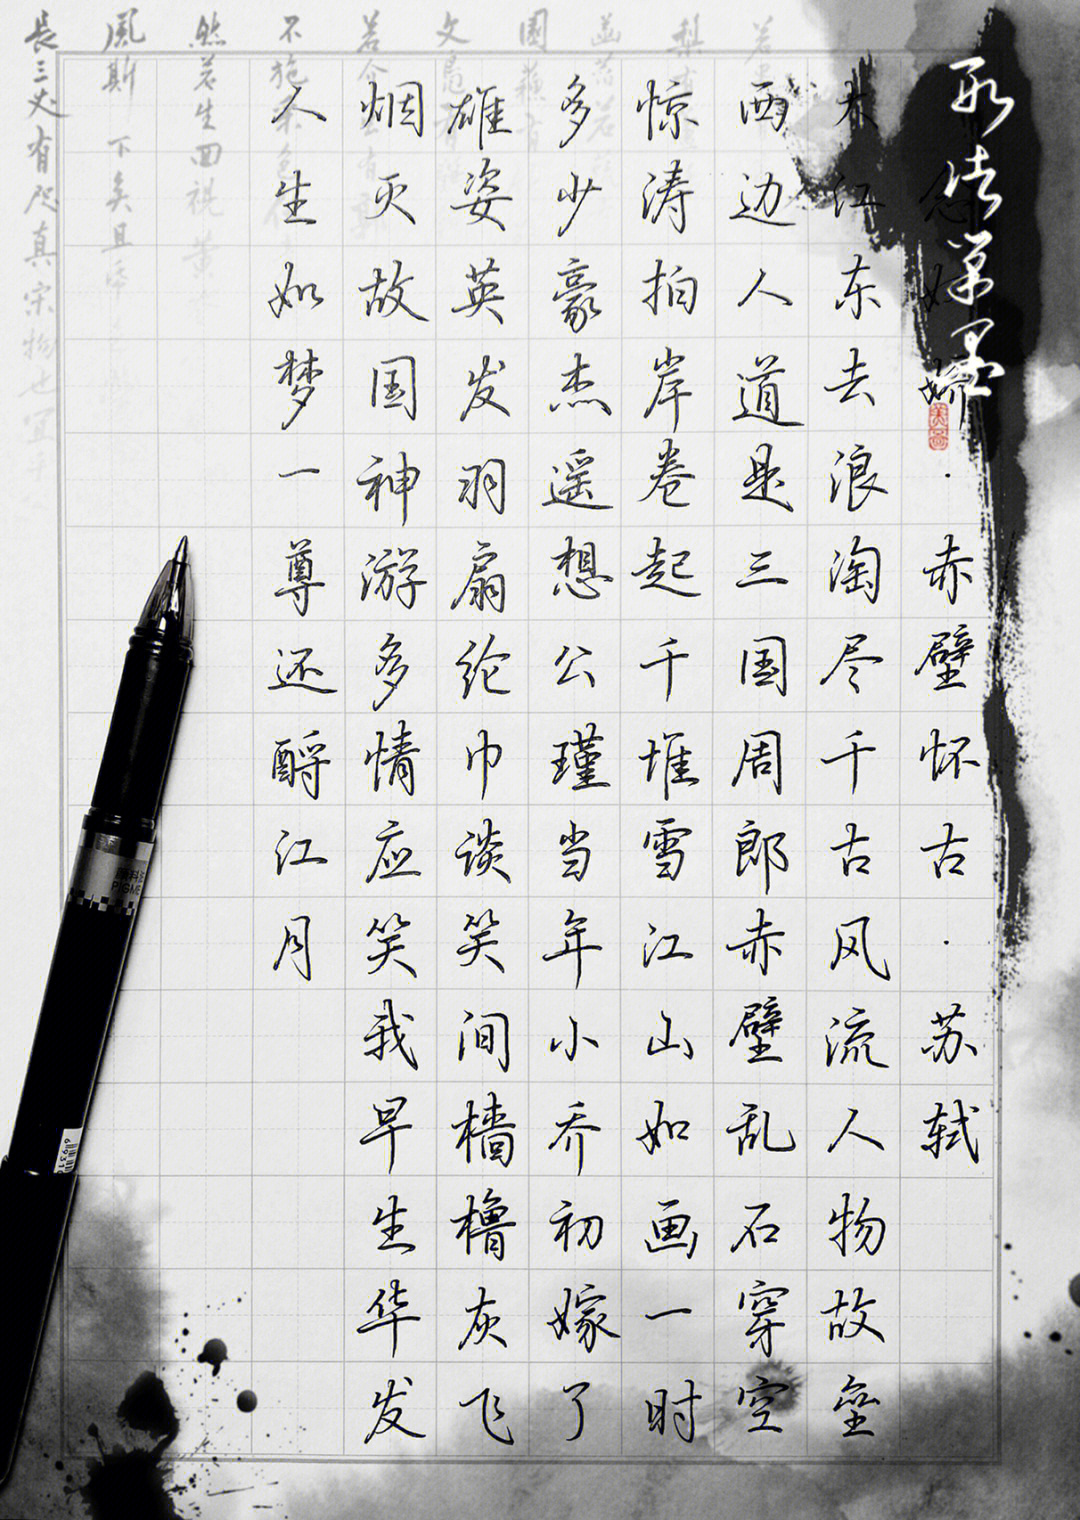 念奴娇·赤壁怀古·苏轼
大江东去浪淘尽千古风流人物故垒
西边人道是三国周郎赤壁乱石穿空
惊涛拍岸卷起千堆雪江山如画一时
多少豪杰遥想公瑾当年小乔初嫁了
雄姿英发羽扇纶巾谈笑间樯橹灰飞
烟灭故国神游多情应笑我早生华发
人生如梦一尊还酹江月
然若生回視黄
風斯下矣且
長三丈有咫真宋物也宜乎